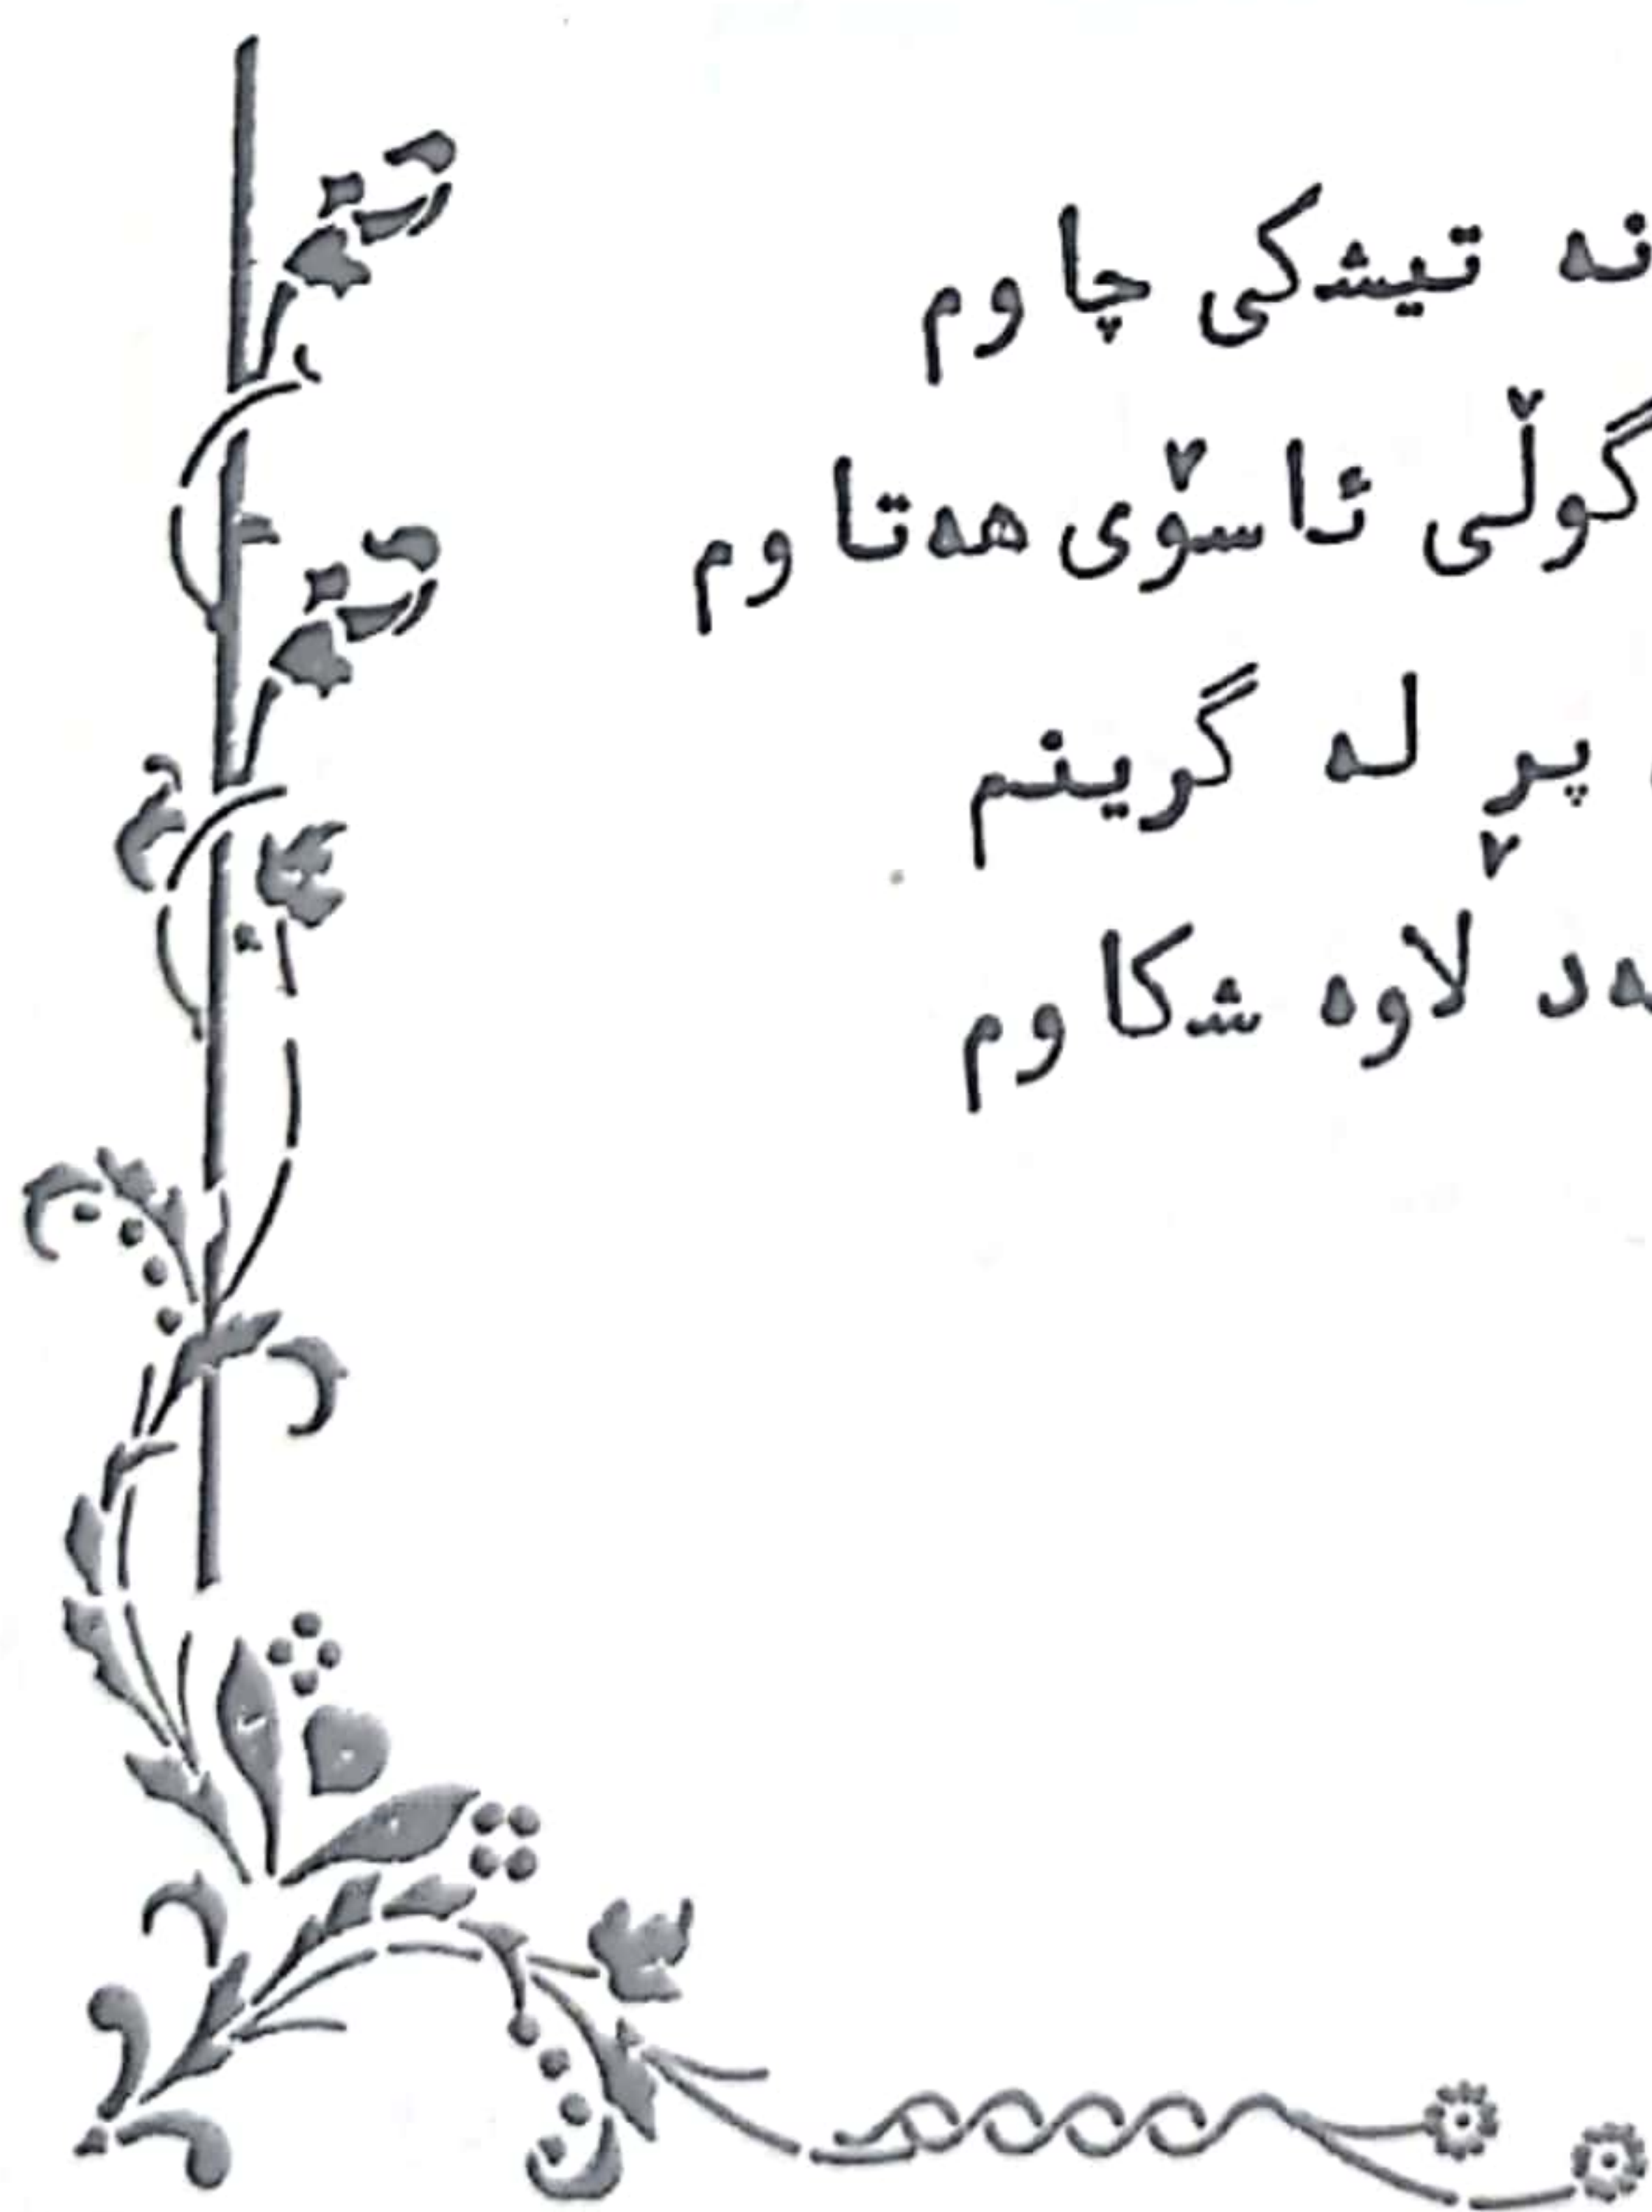 نە تیشکی چاوم
گوڵی ئاسۆی هەتاوم
پڕ لە گرینم
لاوە شکاوم